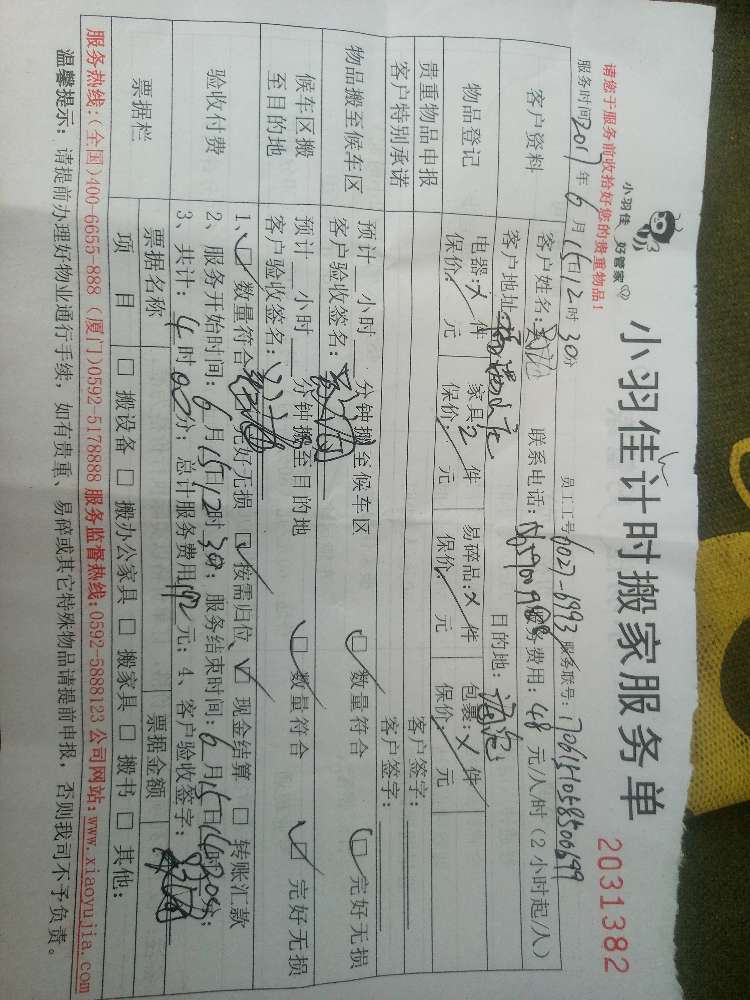 小羽佳 好管家
小羽佳计时搬家服务单
2031382
请您于服务前收拾好您的贵重物品!
服务时间2017年6月15日12时30分 员工工号6027-6993 服务联号:
客户资料 客户姓名: 联系电话: 服务费用:48元/人/时(2小时起/人)
客户地址: 目的地:
物品登记 电器:×件 家具:2件 易碎品:×件 包裹:×件
保价: 元 保价: 元 保价: 元 保价: 元
贵重物品申报 客户签字:
客户特别承诺 客户签字:
物品搬至候车区 预计 小时 分钟搬至候车区 □数量符合 □完好无损
客户验收签名:
候车区搬至目的地 预计 小时 分钟搬至目的地 □数量符合 □完好无损
客户验收签名:
验收付费 1、□数量符合 □完好无损 □按需归位 □现金结算 □转账汇款
2、服务开始时间:6月15日12时30分;服务结束时间:6月15日14时20分;
3、共计:4时00分;总计服务费用192元;4、客户验收签字:
票据栏 票据名称 票据金额
项目 □搬设备 □搬办公家具 □搬家具 □搬书 □其他:
服务热线:(全国)400-6655-888 (厦门)0592-5178888 服务监督热线:0592-5888123 公司网站:www.xiaoyujia.com
温馨提示:请提前办理好物业通行手续,如有贵重、易碎或其它特殊物品请提前申报,否则我司不予负责。